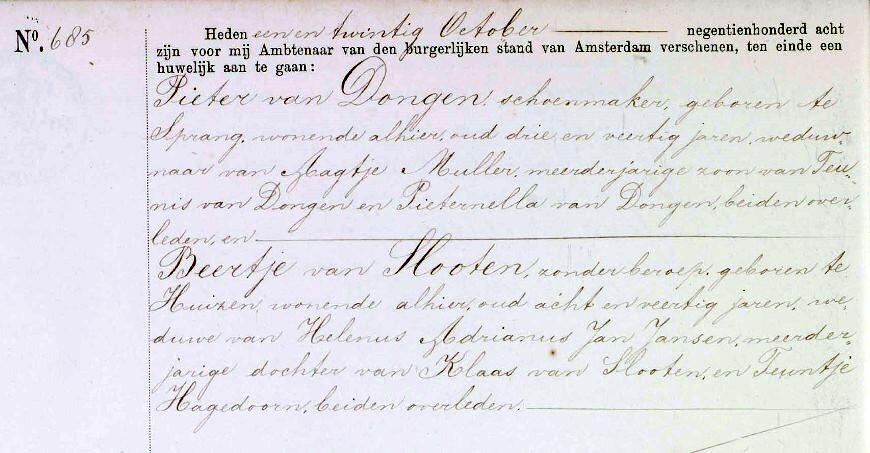 Nº. 685
Heden een en twintig October negentienhonderd acht
zijn voor mij Ambtenaar van den burgerlijken stand van Amsterdam verschenen, ten einde een
huwelijk aan te gaan:
Pieter van Dongen, schoenmaker, geboren te
Sprang, wonende alhier, oud drie en veertig jaren, weduw-
naar van Aagtje Muller, meerderjarige zoon van Teu-
nis van Dongen en Pieternella van Dongen, beiden over-
leden, en
Beertje van Slooten, zonder beroep, geboren te
Huizen, wonende alhier, oud acht en veertig jaren, we-
duwe van Helenus Adrianus Jan Jansen, meerder-
jarige dochter van Klaas van Slooten, en Teuntje
Hagedoorn, beiden overleden.